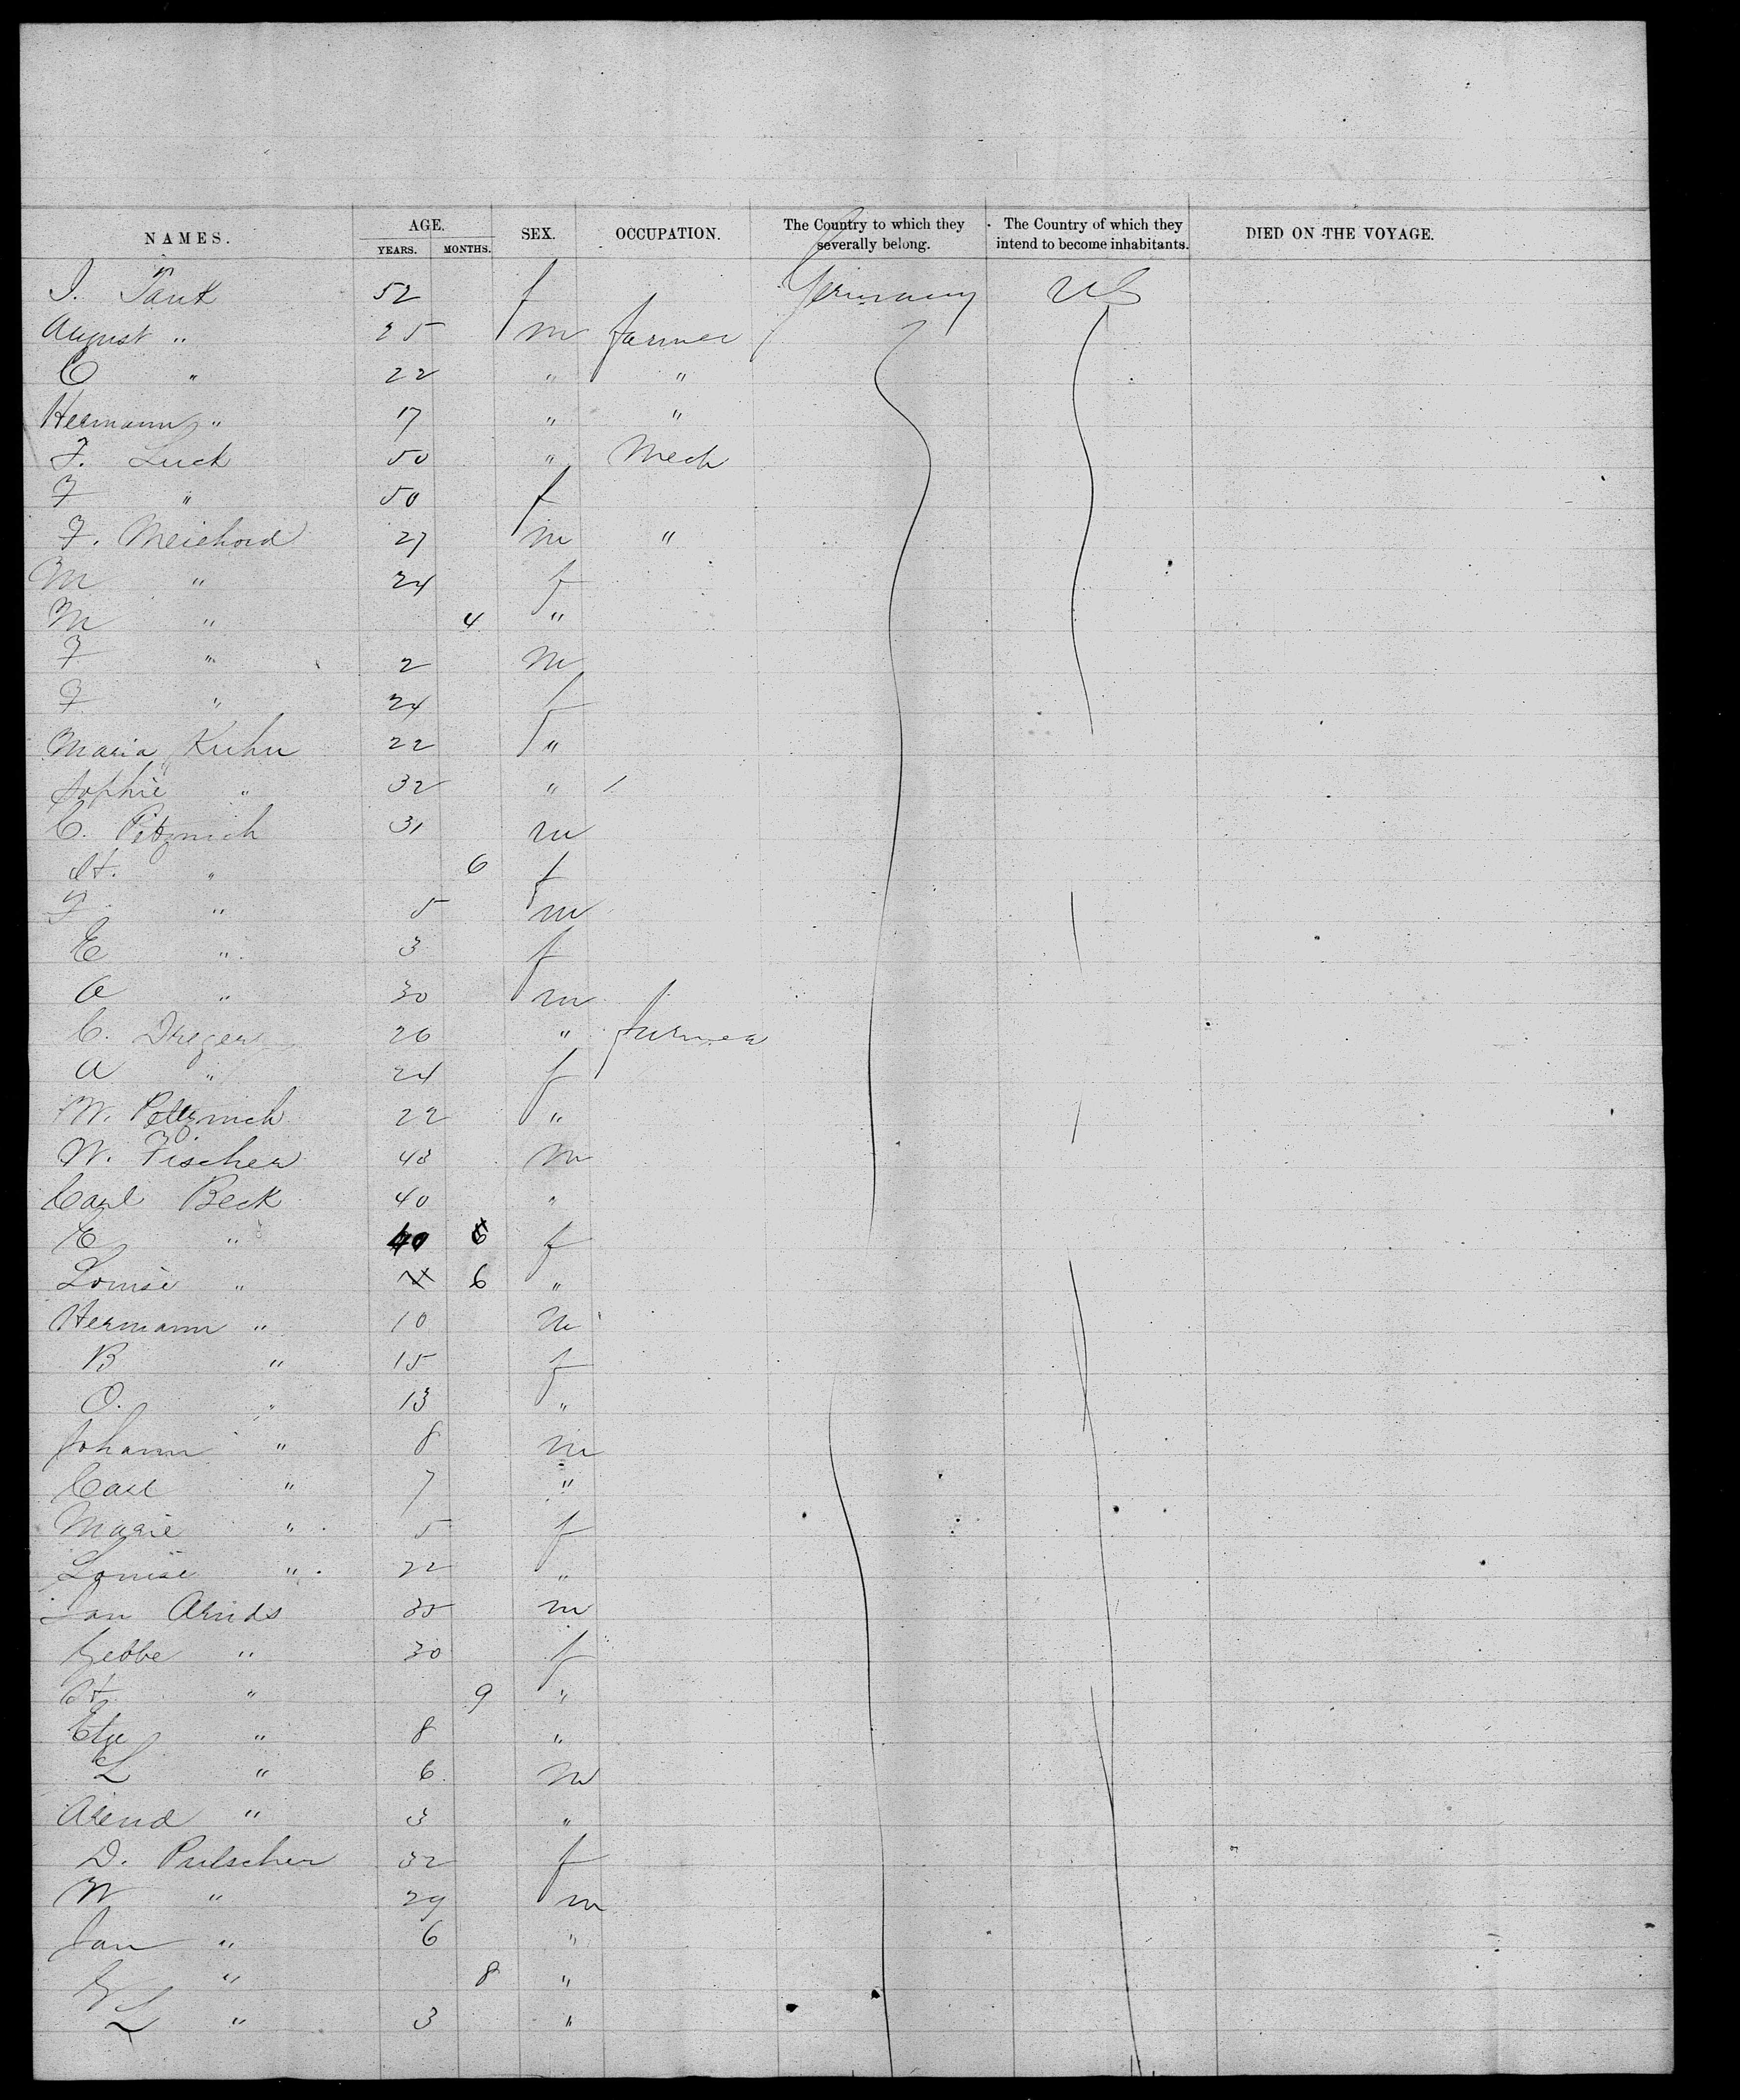 NAMES. AGE. SEX. OCCUPATION. The Country to which they severally belong. The Country of which they intend to become inhabitants. DIED ON THE VOYAGE.
YEARS. MONTHS.
I. Tank 52 f Germany US
August " 25 m farmer
C " 22 " "
Hermann " 17 " "
F. Luck 50 " Mech
F " 50 f
F. Meichord 27 m "
M " 24 f
M " 4 "
F " 2 m
F " 24 f
Maria Kuhn 22 "
Sophie " 32 "
C. Pitzmich 31 m
" 6 f
F " 5 m
E " 3 f
A " 30 m
C. Dreger 26 " farmer
A " 24 f
W. Petermich 22 "
W. Fischer 48 m
Carl Beck 40 "
E " 40 f
Louise " 6 "
Hermann " 10 m
B " 15 f
O. " 13 "
Johann " 8 m
Carl " 7 "
Marie " 5 f
Louise " 22 "
Jan Arnds 35 m
Gebbe " 30 f
" 9 "
" 8 "
L " 6 m
Arend " 3 "
D. Pulscher 32 f
W " 29 m
Jan " 6 "
G " 8 "
L " 3 "